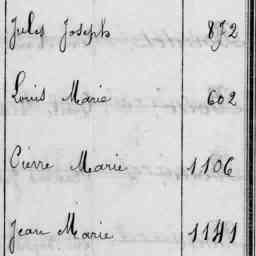 Jules Joseph 872
Louis Marie 602
Pierre Marie 1106
Jean Marie 1141